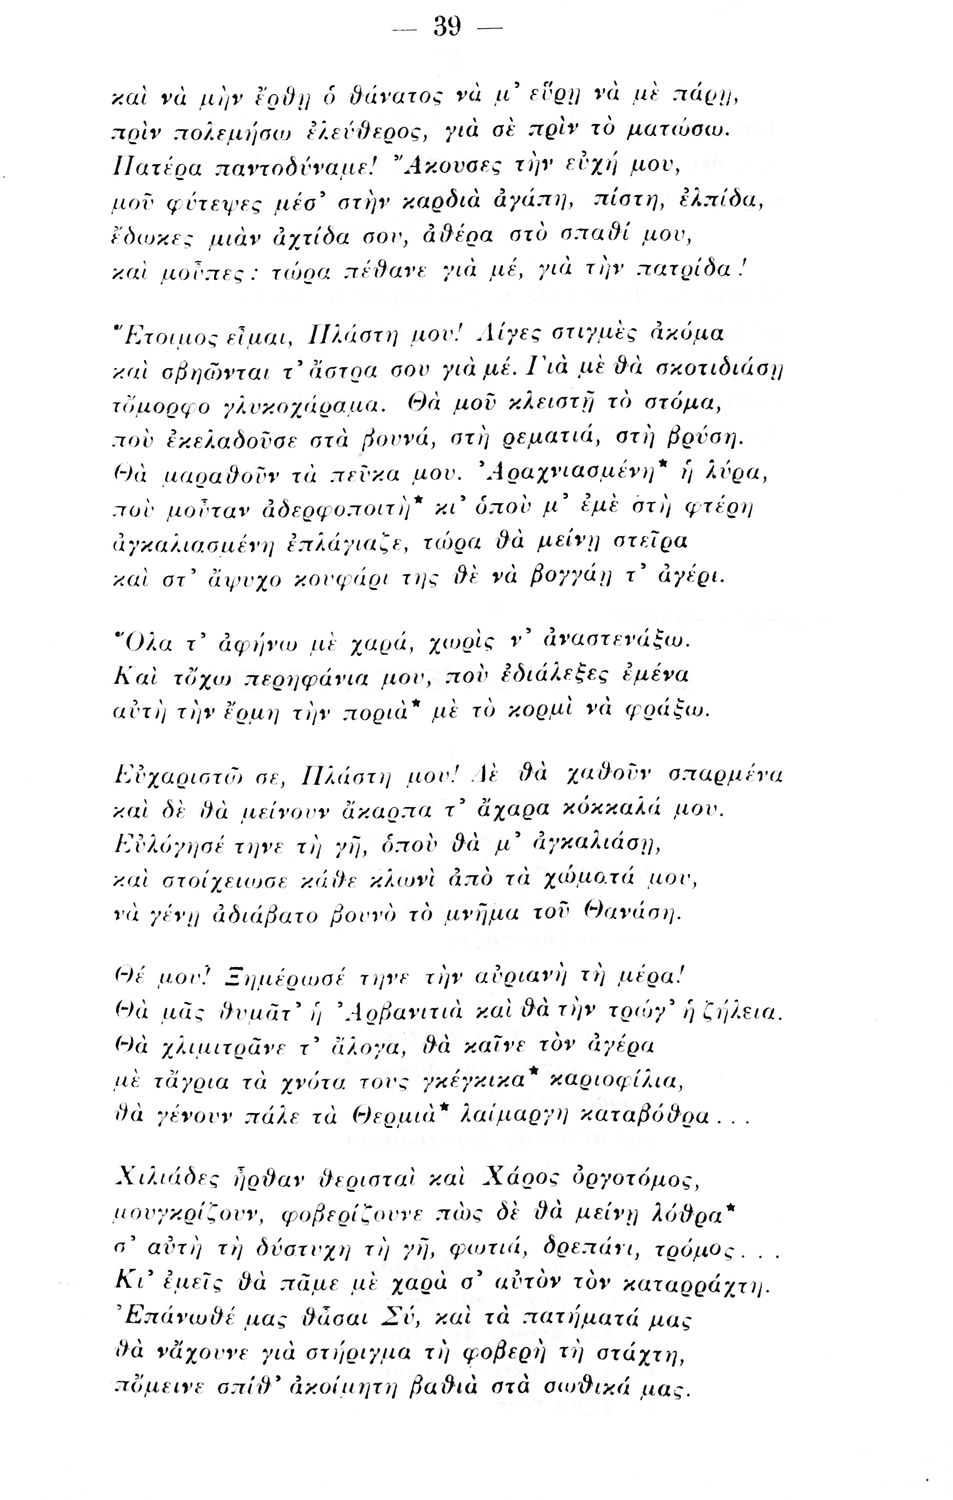 — 39 —
καὶ νὰ μὴν ἔρθῃ ὁ θάνατος νὰ μ’ εὕρῃ νὰ μὲ πάρῃ,
πρὶν πολεμήσω ἐλεύθερος, γιὰ σὲ πρὶν τὸ ματώσω.
Πατέρα παντοδύναμε! Ἄκουσες τὴν εὐχή μου,
μοῦ φύτεψες μέσ’ στὴν καρδιὰ ἀγάπη, πίστη, ἐλπίδα,
ἔδωκες μιὰν ἀχτίδα σου, ἀθέρα στὸ σπαθί μου,
καὶ μοὖπες: τώρα πέθανε γιὰ μέ, γιὰ τὴν πατρίδα!
Ἕτοιμος εἶμαι, Πλάστη μου! Λίγες στιγμὲς ἀκόμα
καὶ σβηῶνται τ’ ἄστρα σου γιὰ μέ. Γιὰ μὲ θὰ σκοτιδιάσῃ
τὤμορφο γλυκοχάραμα. Θὰ μοῦ κλειστῇ τὸ στόμα,
ποὺ ἐκελαδοῦσε στὰ βουνά, στὴ ρεματιά, στὴ βρύση.
Θὰ μαραθοῦν τὰ πεῦκα μου. Ἀραχνιασμένη* ἡ λύρα,
ποὺ μοὖταν ἀδερφοποιτὴ* κι’ ὁποὺ μ’ ἐμὲ στὴ φτέρη
ἀγκαλιασμένη ἐπλάγιαζε, τώρα θὰ μείνῃ στεῖρα
καὶ στ’ ἄψυχο κουφάρι της θὲ νὰ βογγάῃ τ’ ἀγέρι.
Ὅλα τ’ ἀφήνω μὲ χαρά, χωρὶς ν’ ἀναστενάξω.
Καὶ τὄχω περηφάνια μου, ποὺ ἐδιάλεξες ἐμένα
αὐτὴ τὴν ἔρμη τὴν ποριὰ* μὲ τὸ κορμὶ νὰ φράξω.
Εὐχαριστῶ σε, Πλάστη μου! Δὲ θὰ χαθοῦν σπαρμένα
καὶ δὲ θὰ μείνουν ἄκαρπα τ’ ἄχαρα κόκκαλά μου.
Εὐλόγησέ τηνε τὴ γῆ, ὁποὺ θὰ μ’ ἀγκαλιάσῃ,
καὶ στοίχειωσε κάθε κλωνὶ ἀπὸ τὰ χώματά μου,
νὰ γένῃ ἀδιάβατο βουνὸ τὸ μνῆμα τοῦ Θανάση.
Θέ μου! Ξημέρωσέ τηνε τὴν αὐριανὴ τὴ μέρα!
Θὰ μᾶς θυμᾶτ’ ἡ Ἀρβανιτιὰ καὶ θὰ τὴν τρώγ’ ἡ ζήλεια.
Θὰ χλιμιτρᾶνε τ’ ἄλογα, θὰ καῖνε τὸν ἀγέρα
μὲ τἄγρια τὰ χνότα τους γκέγκικα* καριοφίλια,
θὰ γένουν πάλε τὰ Θερμιὰ* λαίμαργη καταβόθρα...
Χιλιάδες ἦρθαν θερισταὶ καὶ Χάρος ὀργοτόμος,
μουγκρίζουν, φοβερίζουνε πὼς δὲ θὰ μείνῃ λόθρα*
σ’ αὐτὴ τὴ δύστυχη τὴ γῆ, φωτιά, δρεπάνι, τρόμος...
Κι’ ἐμεῖς θὰ πᾶμε μὲ χαρὰ σ’ αὐτὸν τὸν καταρράχτη.
Ἐπάνωθέ μας θἆσαι Σύ, καὶ τὰ πατήματά μας
θὰ νἄχουνε γιὰ στήριγμα τὴ φοβερὴ τὴ στάχτη,
πὄμεινε σπίθ’ ἀκοίμητη βαθιὰ στὰ σωθικά μας.